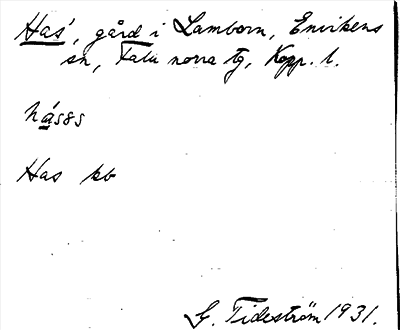 Has', gård i Lamborn, Envikens
sn, Falu norra tg, Kopp. l.
Has kb
G. Tideström 1931.